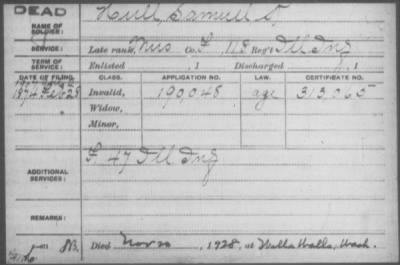 DEAD
NAME OF SOLDIER: Hull, Samuel D.
SERVICE: Late rank, Mus Co. F, 118 Reg't Ill Inf
TERM OF SERVICE: Enlisted , 1 Discharged , 1
DATE OF FILING. CLASS. APPLICATION NO. LAW. CERTIFICATE NO.
1874 Feb 28 Invalid, 190,048 age 313,065
Widow,
Minor,
F. 47 Ill Inf
ADDITIONAL SERVICES:
REMARKS:
Died Nov 20, 1928, at Walla Walla, Wash.